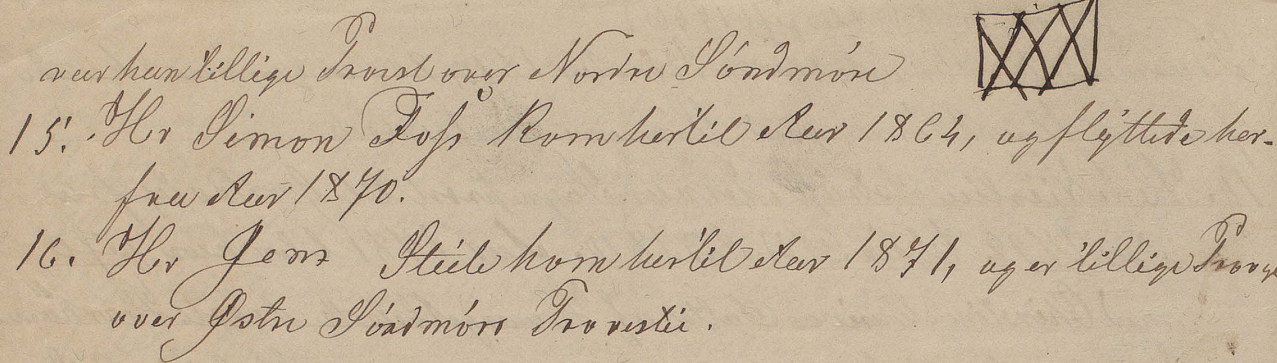 var han tillige Provst over Nordre Söndmöre
15. Hr Simon Foss kom hertil Aar 1864, og flÿttede her-
fra Aar 1870.
16. Hr Jens kom hertil Aar 1871, og er tillige
over Østre Söndmörs Provestie.